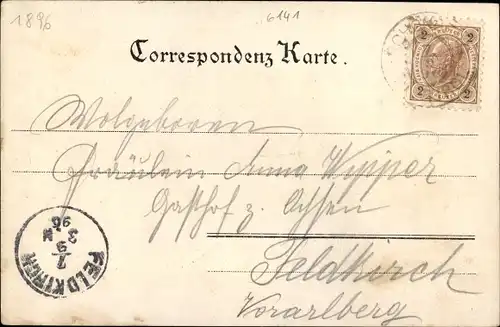 1896
6141
Correspondenz Karte.
2 2
Wolgeboren
Fräulein Anna Wypper
Gasthof z. Ochsen
Feldkirch
Vorarlberg
FELDKIRCH
7
9
3 N
96